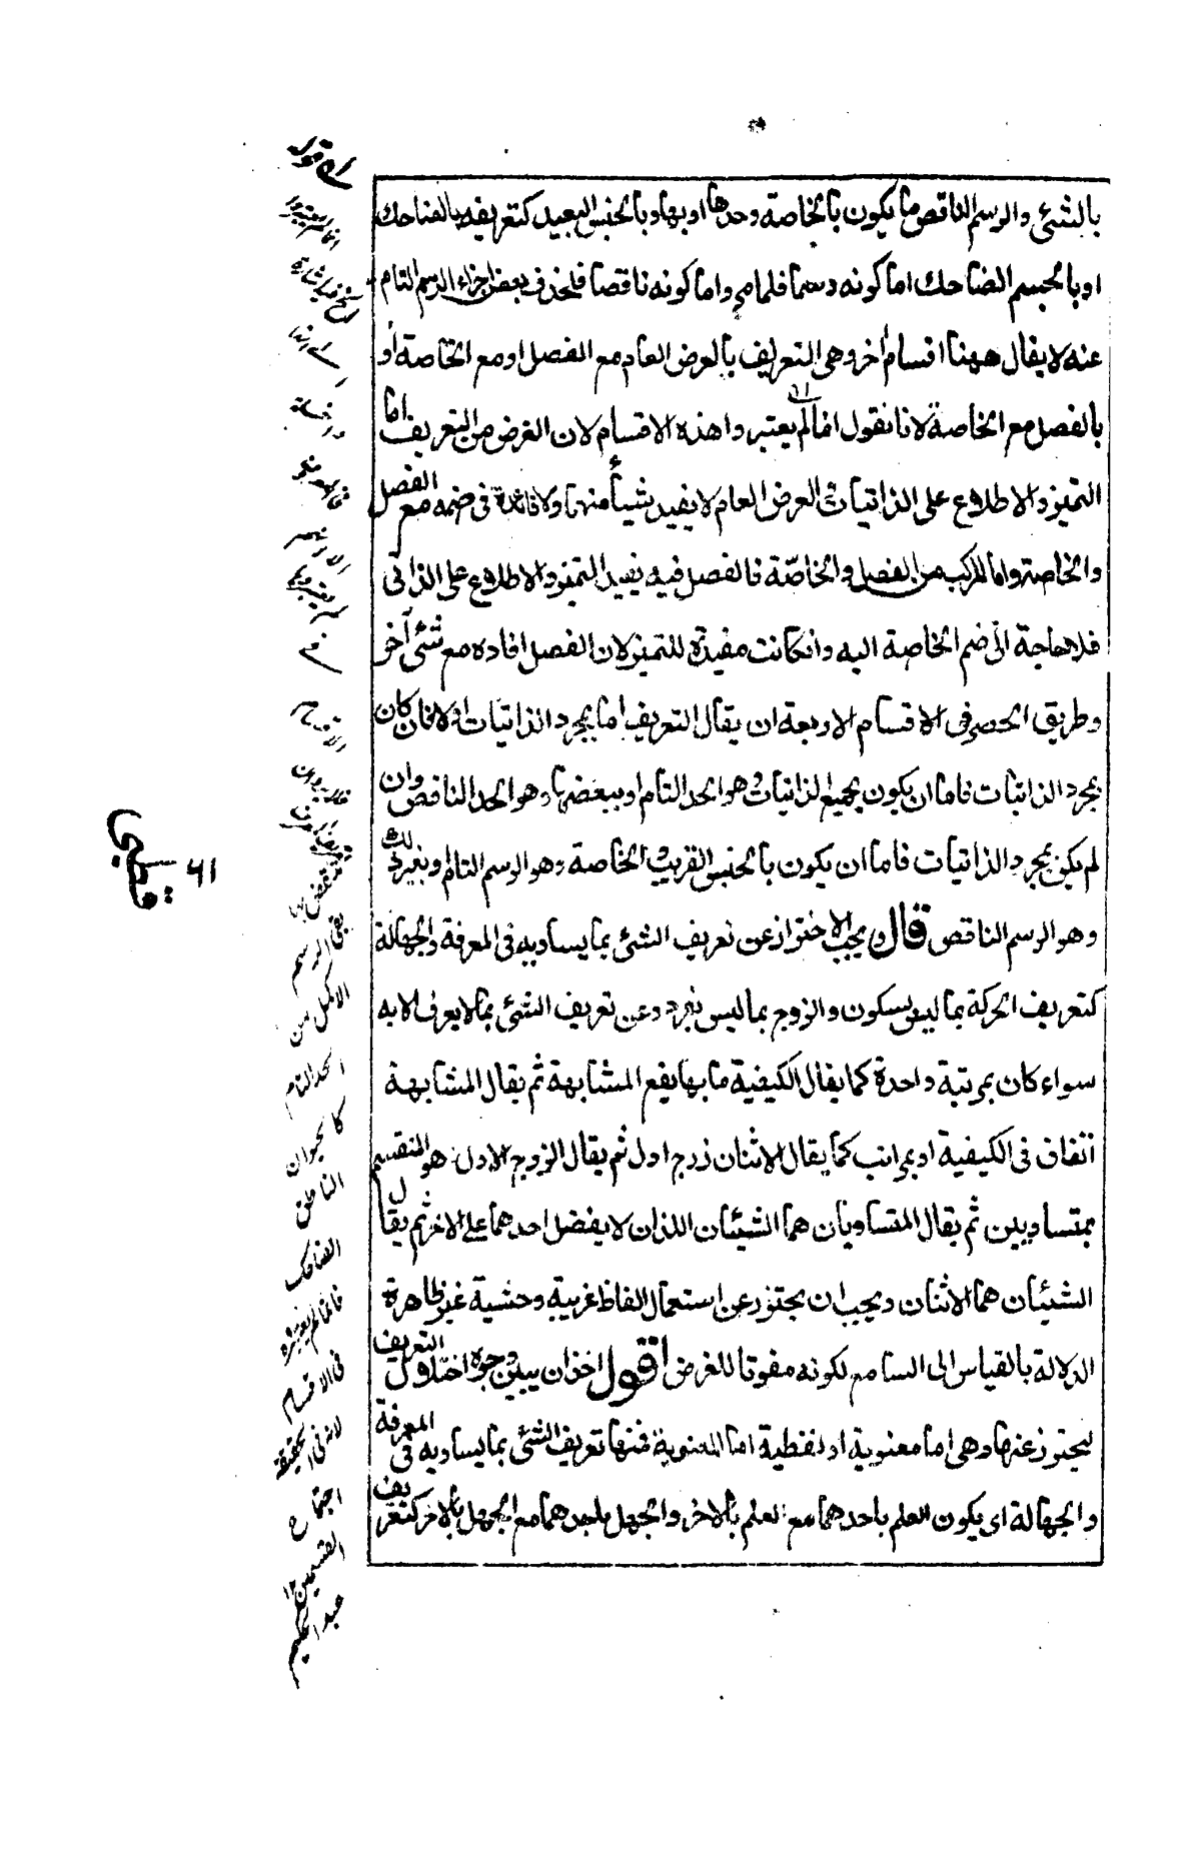 بالشئ والرسم الناقص ما يكون بالخاصة وحدها او بها وبالجنس البعيد كتعريفه بالضاحك
او بالجسم الضاحك اما كونه رسما فلما مر واما كونه ناقصا فلحذف بعض اجزاء الرسم التام
عنه لا يقال ههنا اقسام اخر وهى التعريف بالعرض العام مع الفصل او مع الخاصة او
بالفصل مع الخاصة لانا نقول انما لم يعتبروا هذه الاقسام لان الغرض من التعريف اما
التميز والاطلاع على الذاتيات والعرض العام لا يفيد شيئا منهما ولا فائدة فى ضمه مع الفصل
والخاصة واما المركب من الفصل والخاصة فالفصل فيه يفيد التميز والاطلاع على الذاتى
فلا حاجة الى ضم الخاصة اليه وانكانت مفيدة للتميز لان الفصل افاده مع شئ آخر
وطريق الحصر فى الاقسام الاربعة ان يقال التعريف اما بمجرد الذاتيات اولا فان كان
بمجرد الذاتيات فاما ان يكون بجميع الذاتيات وهو الحد التام او ببعضها وهو الحد الناقص وان
لم يكن بمجرد الذاتيات فاما ان يكون بالجنس القريب والخاصة وهو الرسم التام او بغير ذلك
وهو الرسم الناقص قال ويجب الاحتراز عن تعريف الشئ بما يساويه فى المعرفة والجهالة
كتعريف الحركة بما ليس بسكون والزوج بما ليس بفرد وعن تعريف الشئ بما لا يعرف الا به
سواء كان بمرتبة واحدة كما يقال الكيفية ما بها يقع المشابهة ثم يقال المشابهة
اتفاق فى الكيفية او بمراتب كما يقال الاثنان زوج اول ثم يقال الزوج الاول هو المنقسم
بمتساويين ثم يقال المتساويان هما الشيئان اللذان لا يفضل احدهما على الاخر ثم يقال
الشيئان هما الاثنان ويجب ان يحترز عن استعمال الفاظ غريبة وحشية غير ظاهرة
الدلالة بالقياس الى السامع لكونه مفوتا للغرض اقول اخذ ان يبين وجوه اختلال التعريف
ليحترز عنها وهى اما معنوية او لفظية اما المعنوية فمنها تعريف الشئ بما يساويه فى المعرفة
والجهالة اى يكون العلم باحدهما مع العلم بالاخر والجهل باحدهما مع الجهل بالاخر كتعريف
قوله
بقى الرسم
الاكمل من
الحد التام
كالحيوان
الناطق
الضاحك
فانما لم يعتبروه
فى الاقسام
لانه فى الحقيقة
اجتماع
القسمين ١٢
عبد الحكيم
قطبى
٦١